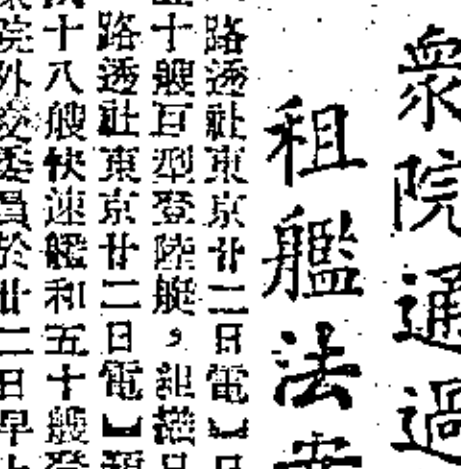 衆院通過
租艦法
路透社東京廿二日電】
十艘巨型登陸艇，租
路透社東京廿二日電】
十八艘快速艦和五十艘登
院外委員於廿二日早